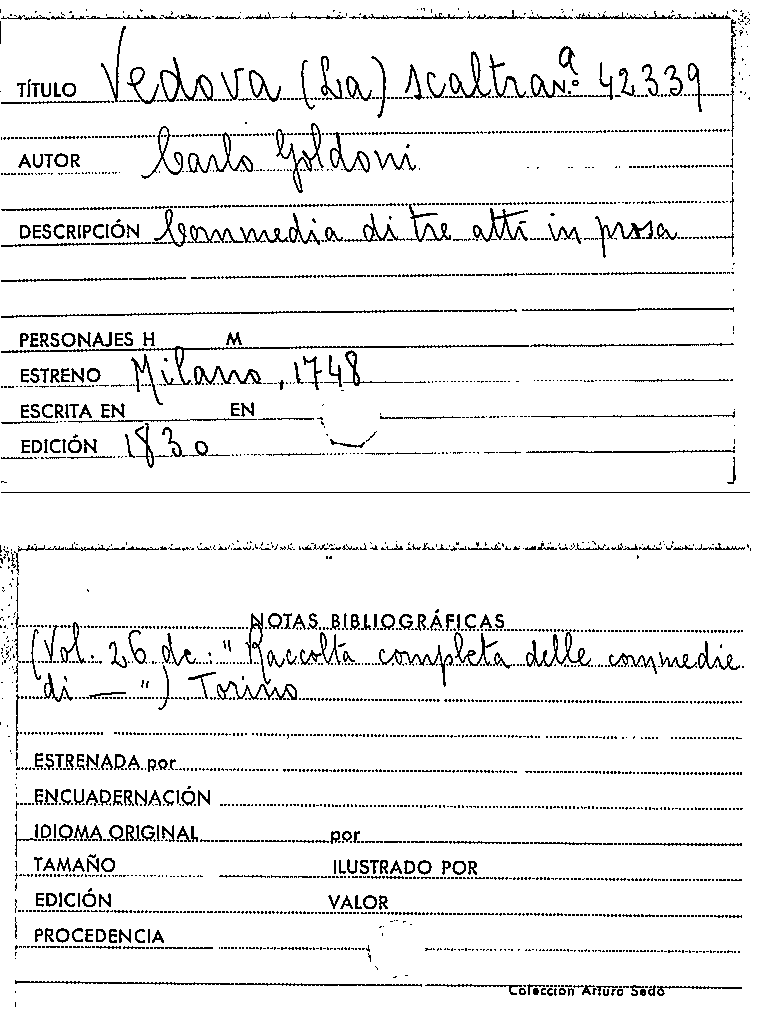 TÍTULO Vedova (La) scaltra N.º 42339
AUTOR Carlo Goldoni
DESCRIPCIÓN Commedia di tre atti in prosa
PERSONAJES H M
ESTRENO Milano, 1748
ESCRITA EN EN
EDICIÓN 1830
NOTAS BIBLIOGRÁFICAS
(Vol. 26 de: "Raccolta completa delle commedie
di — ") Torino
ESTRENADA por
ENCUADERNACIÓN
IDIOMA ORIGINAL por
TAMAÑO ILUSTRADO POR
EDICIÓN VALOR
PROCEDENCIA
Colección Arturo Sedó